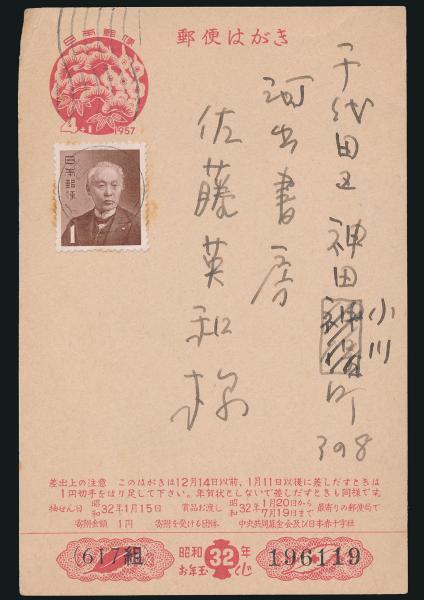 日本郵便
4+1 1957
郵便はがき
日本郵便
1
千代田区 神田小川町
398
河出書房
佐藤英和様
差出上の注意 このはがきは12月14日以前、1月11日以後に差しだすときは
1円切手をはり足して下さい。年賀状としないで差しだすときも同様です。
抽せん日 昭和32年1月15日 賞品お渡し 昭和32年 1月20日から7月19日まで 最寄りの郵便局で
寄附金額 1円 寄附を受ける団体 中央共同募金会及び日本赤十字社
(617組) 昭和32年 お年玉くじ 196119